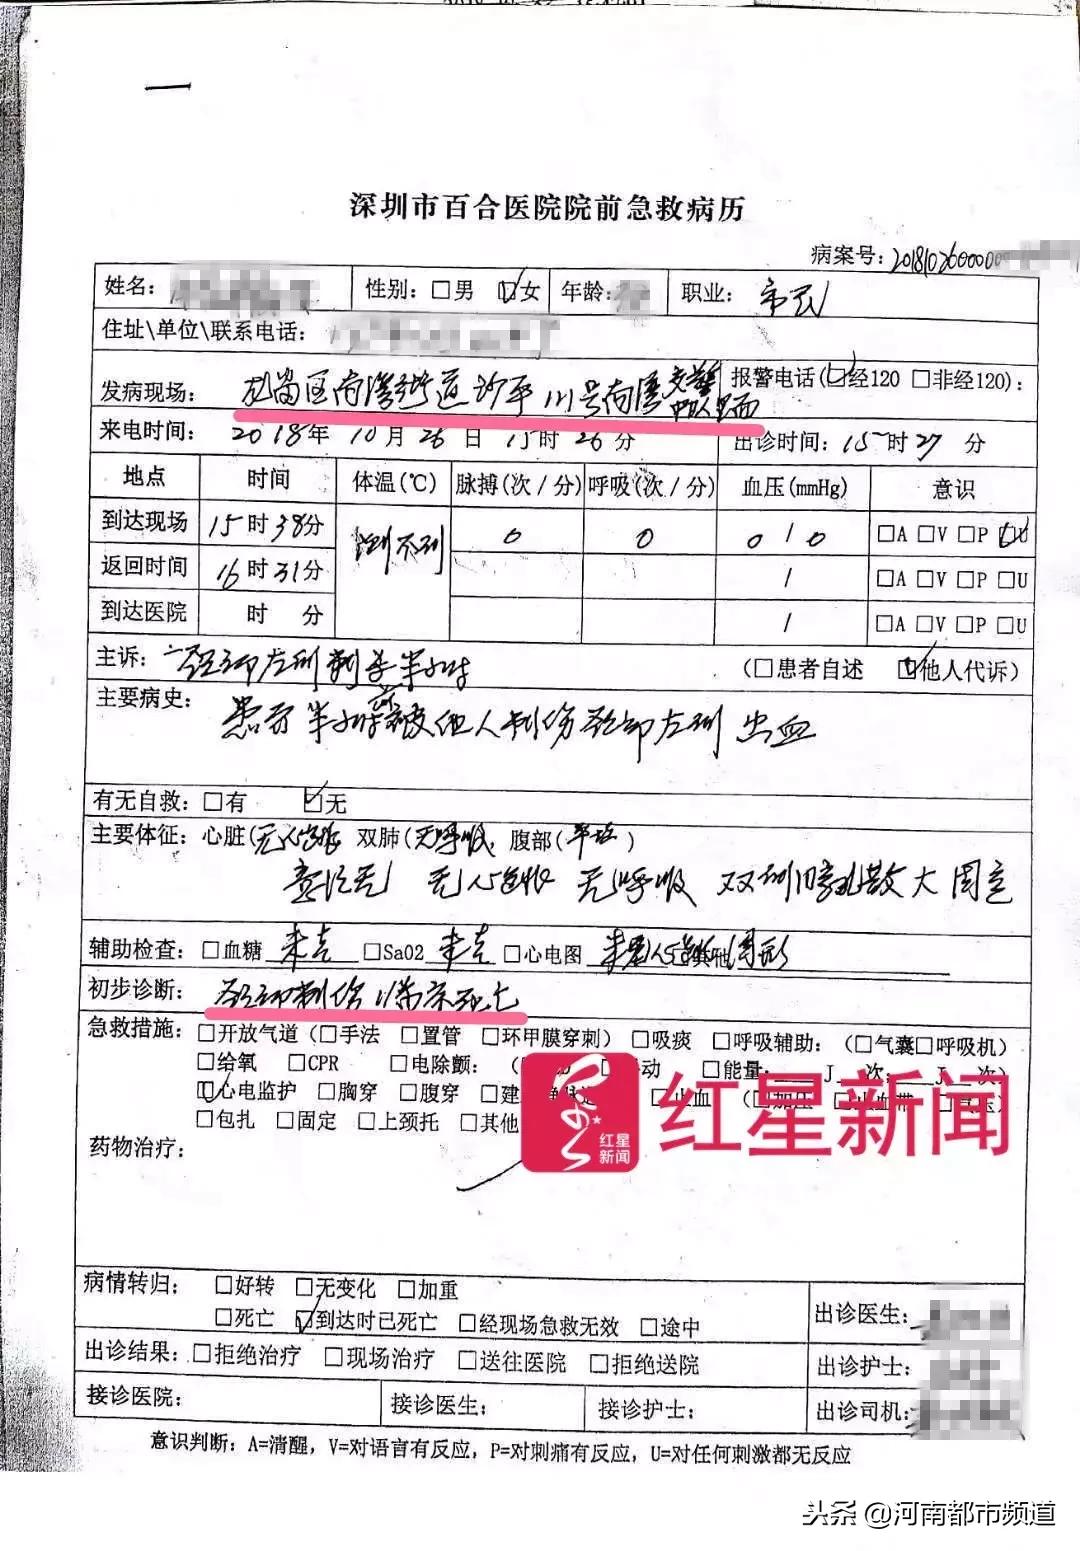 深圳市百合医院院前急救病历
病案号:20181026000000
姓名: 性别:□男 ☑女 年龄: 职业: 市民
住址\单位\联系电话:
发病现场: 龙岗区南湾街道沙平 号南湾交警中队里面 报警电话(☑经120 □非经120):
来电时间: 2018年 10月 26日 15时 26分 出诊时间: 15时 27分
地点 时间 体温(℃) 脉搏(次/分) 呼吸(次/分) 血压(mmHg) 意识
到达现场 15时38分 测不到 0 0 0/0 □A □V □P ☑U
返回时间 16时31分 / □A □V □P □U
到达医院 时 分 / □A □V □P □U
主诉: 颈部左侧刺伤半小时 (□患者自述 ☑他人代诉)
主要病史:
患者半小时前被他人刺伤颈部左侧 出血
有无自救: □有 ☑无
主要体征: 心脏(无心音 双肺(无呼吸 腹部(平坦)
意识无 无心跳 无呼吸 双侧瞳孔散大固定
辅助检查: □血糖 未查 □SaO2 未查 □心电图
初步诊断: 颈部刺伤 临床死亡
急救措施: □开放气道 (□手法 □置管 □环甲膜穿刺) □吸痰 □呼吸辅助: (□气囊□呼吸机)
□给氧 □CPR □电除颤: 动 □能量: J 次; J 次)
☑心电监护 □胸穿 □腹穿 □建 □止血 (□加压 □止血带 □气压)
□包扎 □固定 □上颈托 □其他
药物治疗:
红星新闻
红星新闻
病情转归: □好转 □无变化 □加重
□死亡 ☑到达时已死亡 □经现场急救无效 □途中
出诊医生:
出诊结果: □拒绝治疗 □现场治疗 □送往医院 □拒绝送院 出诊护士:
接诊医院: 接诊医生: 接诊护士: 出诊司机:
意识判断: A=清醒, V=对语言有反应, P=对刺痛有反应, U=对任何刺激都无反应
头条 @河南都市频道